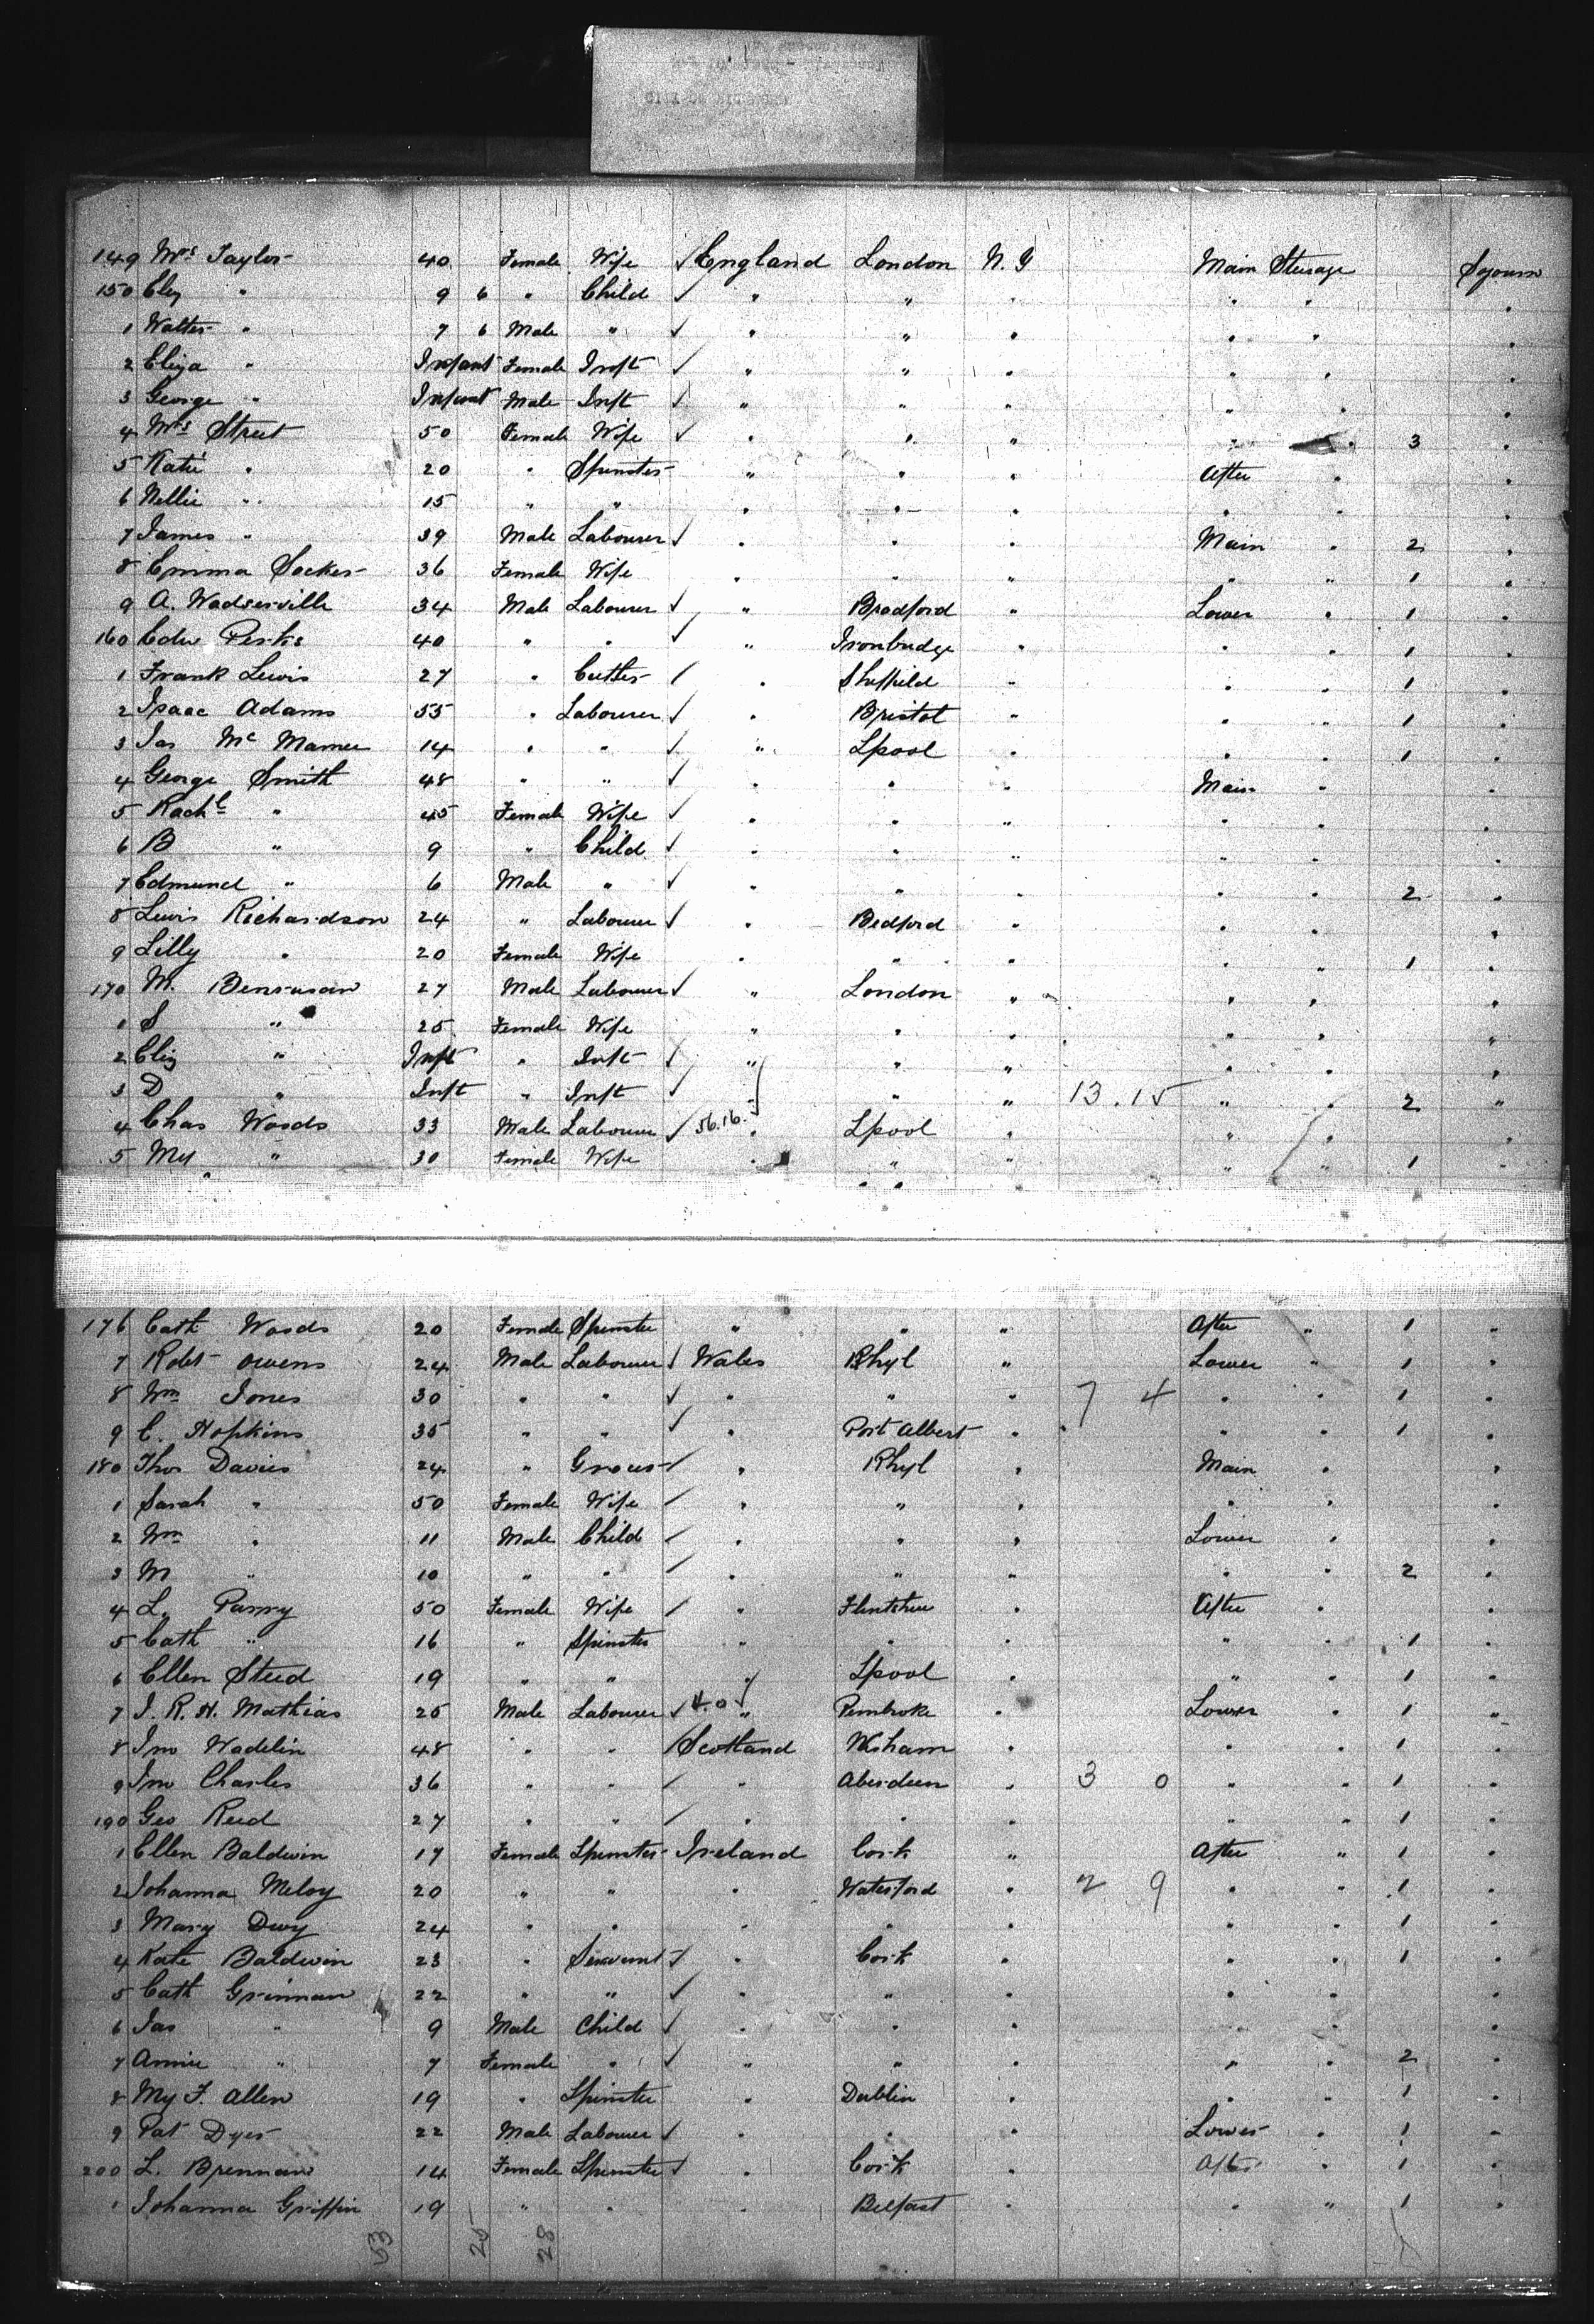 149 Mrs Taylor 40 Female Wife ✓ England London N.Y Main Steerage Sojourn
150 Eliz " 9 6 " Child ✓ " " " " " "
1 Walter " 7 6 Male " ✓ " " " " " "
2 Eliza " Infant Female Inft ✓ " " " " " "
3 George " Infant Male Inft ✓ " " " " " "
4 Mrs Street 50 Female Wife ✓ " " " " " 3 "
5 Katie " 20 " Spinster " " " After " "
6 Nellie " 15 " " " " " " " "
7 James " 39 Male Labourer ✓ " " " Main " 2 "
8 Emma 36 Female Wife " " " " " 1 "
9 A. 34 Male Labourer ✓ " Bradford " Lower " 1 "
160 Edw Perks 40 " " ✓ " Ironbridge " " " 1 "
1 Frank Lewis 27 " Cutler / " Sheffield " " " 1 "
2 Isaac Adams 55 " Labourer ✓ " Bristol " " " 1 "
3 Jas Mc 14 " " ✓ " Lpool " " " 1 "
4 George Smith 48 " " ✓ " " " Main " "
5 Rachl " 45 Female Wife ✓ " " " " " "
6 B " 9 " Child ✓ " " " " " "
7 Edmund " 6 Male " ✓ " " " " " 2 "
8 Lewis Richardson 24 " Labourer ✓ " Bedford " " " "
9 Lilly " 20 Female Wife " " " " " 1 "
170 M. Bensusan 27 Male Labourer ✓ " London " " " "
1 S " 25 Female Wife " " " " " "
2 Eliz " Inft " Inft ✓ " " " " " "
3 D " Inft " Inft ✓ " " " 13.15 " " 2 "
4 Chas Woods 33 Male Labourer ✓ 56.16 " Lpool " " " "
5 My " 30 Female Wife " " " " " 1 "
176 Cath Woods 20 Female Spinster " " " After " 1 "
7 Robt Owens 24 Male Labourer ✓ Wales Rhyl " Lower " 1 "
8 Wm Jones 30 " " ✓ " " " 7 4 " " 1 "
9 C. Hopkins 35 " " ✓ " Port Albert " " " 1 "
180 Thos Davies 24 " Grocer / " Rhyl " Main " "
1 Sarah " 50 Female Wife / " " " " " "
2 Wm " 11 Male Child / " " " Lower " "
3 M " 10 " " / " " " " " 2 "
4 L. Parry 50 Female Wife / " Flintshire " After " "
5 Cath " 16 " Spinster " " " " " 1 "
6 Ellen Steed 19 " " " Lpool " " " 1 "
7 J. R. H. Mathias 25 Male Labourer ✓ 4.0 " Pembroke " Lower " 1 "
8 Jno Wadelin 48 " " / Scotland Wisham " " " 1 "
9 Jno Charles 36 " " / " Aberdeen " 3 0 " " 1 "
190 Geo Reid 27 " " / " " " " " 1 "
1 Ellen Baldwin 17 Female Spinster Ireland Cork " After " 1 "
2 Johanna Meloy 20 " " " Waterford " 2 9 " " 1 "
3 Mary Dwy 24 " " " " " " " 1 "
4 Kate Baldwin 23 " Servant ✓ " Cork " " " 1 "
5 Cath Grinnan 22 " " ✓ " " " " " "
6 Jas " 9 Male Child ✓ " " " " " "
7 Annie " 7 Female " ✓ " " " " " 2 "
8 My F. Allen 19 " Spinster " Dublin " " " 1 "
9 Pat Dyer 22 Male Labourer ✓ " " " Lower " 1 "
200 L. Brennan 14 Female Spinster ✓ " Cork " After " 1 "
1 Johanna Griffin 19 " " " Belfast " " " 1 "
53 25 28